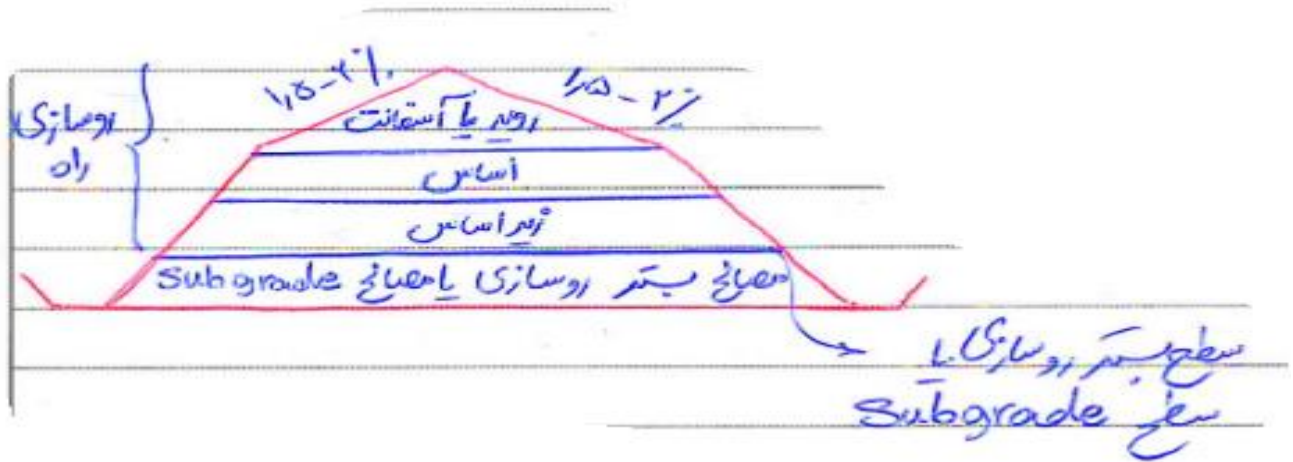 ۱,۵-۲٪
۱,۵-۲٪
رویه یا آسفالت
روسازی
راه
اساس
زیر اساس
مصالح بستر روسازی یا مصالح Subgrade
سطح بستر روسازی یا
سطح Subgrade